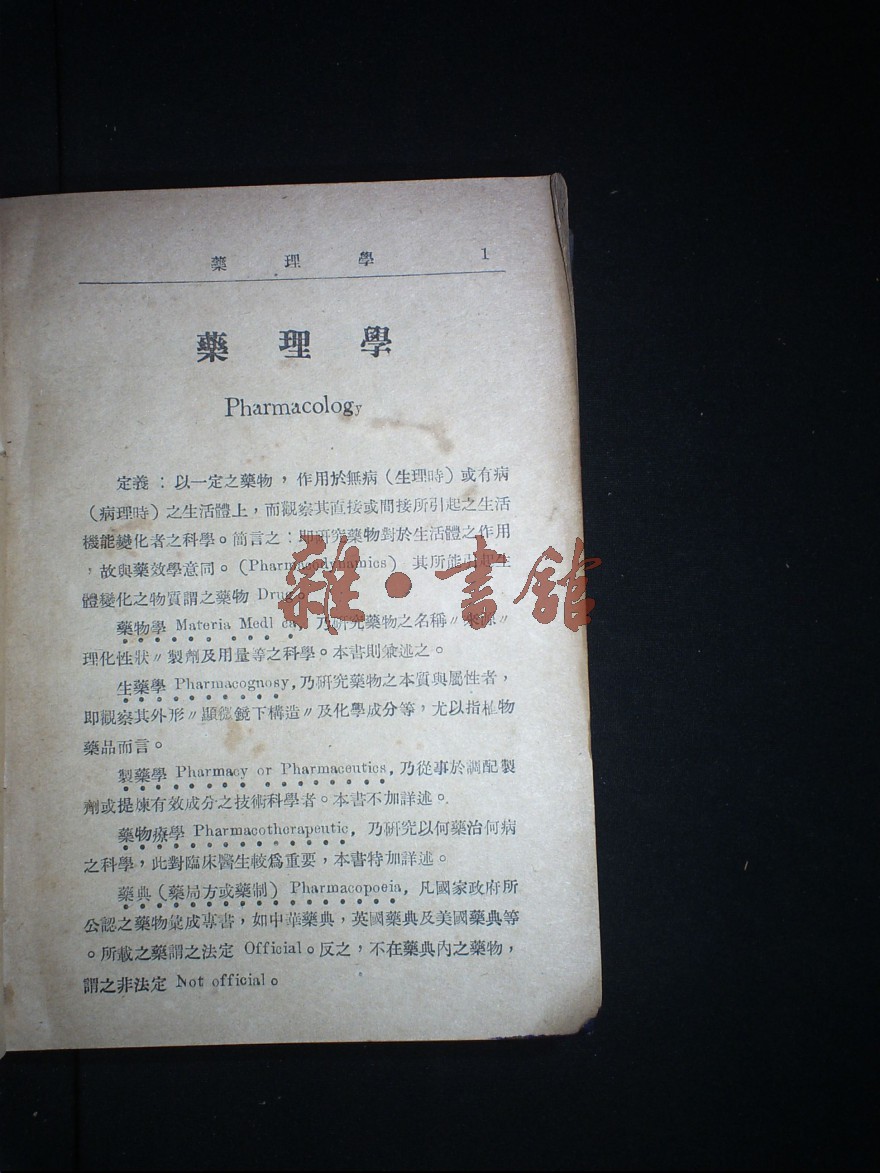 藥理學 1
藥理學
Pharmacology
定義：以一定之藥物，作用於無病（生理時）或有病
（病理時）之生活體上，而觀察其直接或間接所引起之生活
機能變化者之科學。簡言之：即研究藥物對於生活體之作用
，故與藥效學意同。（Pharmacodynamics）其所能引起生
體變化之物質謂之藥物 Drug。
藥物學 Materia Medl ca, 乃研究藥物之名稱〃來源〃
理化性狀〃製劑及用量等之科學。本書則彙述之。
生藥學 Pharmacognosy, 乃研究藥物之本質與屬性者，
即觀察其外形〃顯微鏡下構造〃及化學成分等，尤以指植物
藥品而言。
製藥學 Pharmacy or Pharmaceutics, 乃從事於調配製
劑或提煉有效成分之技術科學者。本書不加詳述。
藥物療學 Pharmacotherapeutic, 乃研究以何藥治何病
之科學，此對臨床醫生較爲重要，本書特加詳述。
藥典（藥局方或藥制）Pharmacopoeia, 凡國家政府所
公認之藥物彙成專書，如中華藥典，英國藥典及美國藥典等
。所載之藥謂之法定 Official。反之，不在藥典內之藥物，
謂之非法定 Not official。
雜·書館